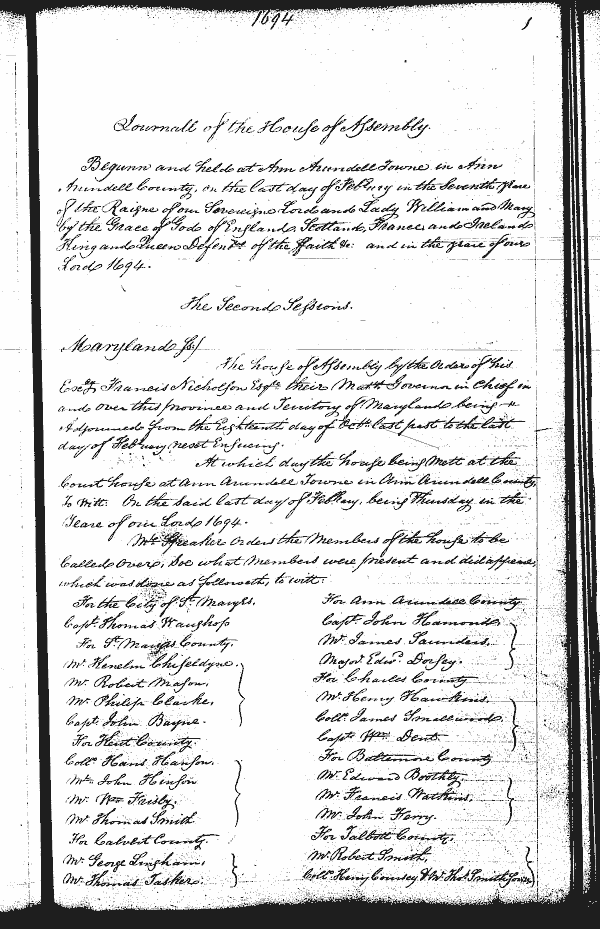 1694
1
Journall of the House of Assembly.
Begunn and held at Ann Arundell Towne in Ann
Arundell County, on the last day of Febr̃y in the Seventh yeare
of the Raigne of our Sovereigne Lord and Lady William and Mary
by the Grace of God of England, Scotland, France and Ireland
King and Queen Defendrs of the ffaith &c: and in the yeare of our
Lord 1694.
The Second Sessions.
Maryland Ss/
The house of Assembly by the Order of his
Exc̃y Francis Nicholson Esqr their Matts Governor in Chief in
and over this province and Territory of Maryland being
Adjourned from the Eighteenth day of Octr last past to the last
day of February next Ensueing.
At which day the house being Mett at the
Court house at Ann Arundell Towne in Ann Arundell County
To Witt. On the said last day of Febr̃ary, being Thursday in the
Yeare of our Lord 1694.
Mr Speaker Orders the Members of the house to be
Called Over, See what Members were present and did appeare,
which was done as followeth, to witt:
For the City of St Maryes.
Capt Thomas Waughop
For St Maryes County.
Mr Kenelm Chiseldyne.
Mr Robert Mason,
Mr Philip Clarke,
Capt John Bayne.
For Kent County.
Coll Hans Hanson.
Mr John Hinson
Mr Wm Frisby.
Mr Thomas Smith
For Calvert County.
Mr George Lingham,
Mr Thomas Tasker.
For Ann Arundell County
Capt John Hamond
Mr James Saunders,
Major Edwd Dorsey.
For Charles County
Mr Henry Hawkins,
Coll James Smallwood
Capt Wm Dent
For Baltemore County
Mr Edward Boothby,
Mr Francis Watkins,
Mr John Ferry.
For Talbott County,
Mr Robert Smith,
Coll Henry Coursey & Mr Thos Smithson